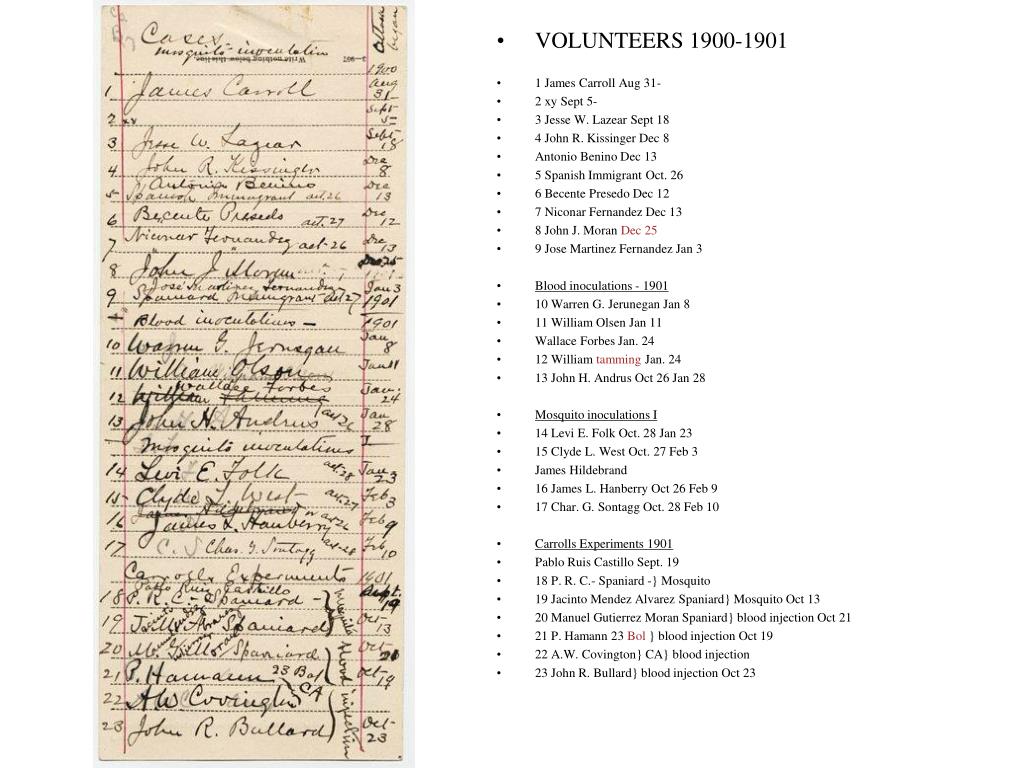 Cases
mosquito inoculation
Attack began
Write nothing below this line
1900
1 James Carroll Aug 31
2 xx Sept 5-
3 Jesse W. Lazear Sept 18
4 John R. Kissinger Dec 8
Antonio Benino
5 Spanish Immigrant oct.26 Dec 13
6 Becente Presedo oct.27 Dec 12
7 Nicanor Fernandez oct-26 Dec 13
8 John J. Moran Dec 25
Jose Martinez Fernandez
9 Spaniard Immigrant oct 27 Jan 3 1901
Blood inoculations — 1901
10 Warren G. Jernegan Jan 8
11 William Olsen Jan 11
Wallace Forbes
12 William Jan. 24
13 John H. Andrus oct 26 Jan 28
Mosquito inoculations I
14 Levi E. Folk oct.28 Jan 23
15 Clyde L. West oct.27 Feb 3
James Hildebrand
16 James L. Hanberry oct 26 Feb 9
17 C. S Chas. G. Sontagg oct-28 Feb 10
Carrolls Experiments 1901
Pablo Ruiz Castillo
18 P. R. C. - Spaniard - Sept. 19
19 Spaniard Oct- 13
mosquito
20 Spaniard Oct- 21
21 P. Hamann 23 Bat Oct- 19
22 A.W. Covington CA
23 John R. Bullard Oct- 23
blood injection
• VOLUNTEERS 1900-1901
• 1 James Carroll Aug 31-
• 2 xy Sept 5-
• 3 Jesse W. Lazear Sept 18
• 4 John R. Kissinger Dec 8
• Antonio Benino Dec 13
• 5 Spanish Immigrant Oct. 26
• 6 Becente Presedo Dec 12
• 7 Niconar Fernandez Dec 13
• 8 John J. Moran Dec 25
• 9 Jose Martinez Fernandez Jan 3
• Blood inoculations - 1901
• 10 Warren G. Jerunegan Jan 8
• 11 William Olsen Jan 11
• Wallace Forbes Jan. 24
• 12 William tamming Jan. 24
• 13 John H. Andrus Oct 26 Jan 28
• Mosquito inoculations I
• 14 Levi E. Folk Oct. 28 Jan 23
• 15 Clyde L. West Oct. 27 Feb 3
• James Hildebrand
• 16 James L. Hanberry Oct 26 Feb 9
• 17 Char. G. Sontagg Oct. 28 Feb 10
• Carrolls Experiments 1901
• Pablo Ruis Castillo Sept. 19
• 18 P. R. C.- Spaniard -} Mosquito
• 19 Jacinto Mendez Alvarez Spaniard} Mosquito Oct 13
• 20 Manuel Gutierrez Moran Spaniard} blood injection Oct 21
• 21 P. Hamann 23 Bol } blood injection Oct 19
• 22 A.W. Covington} CA} blood injection
• 23 John R. Bullard} blood injection Oct 23